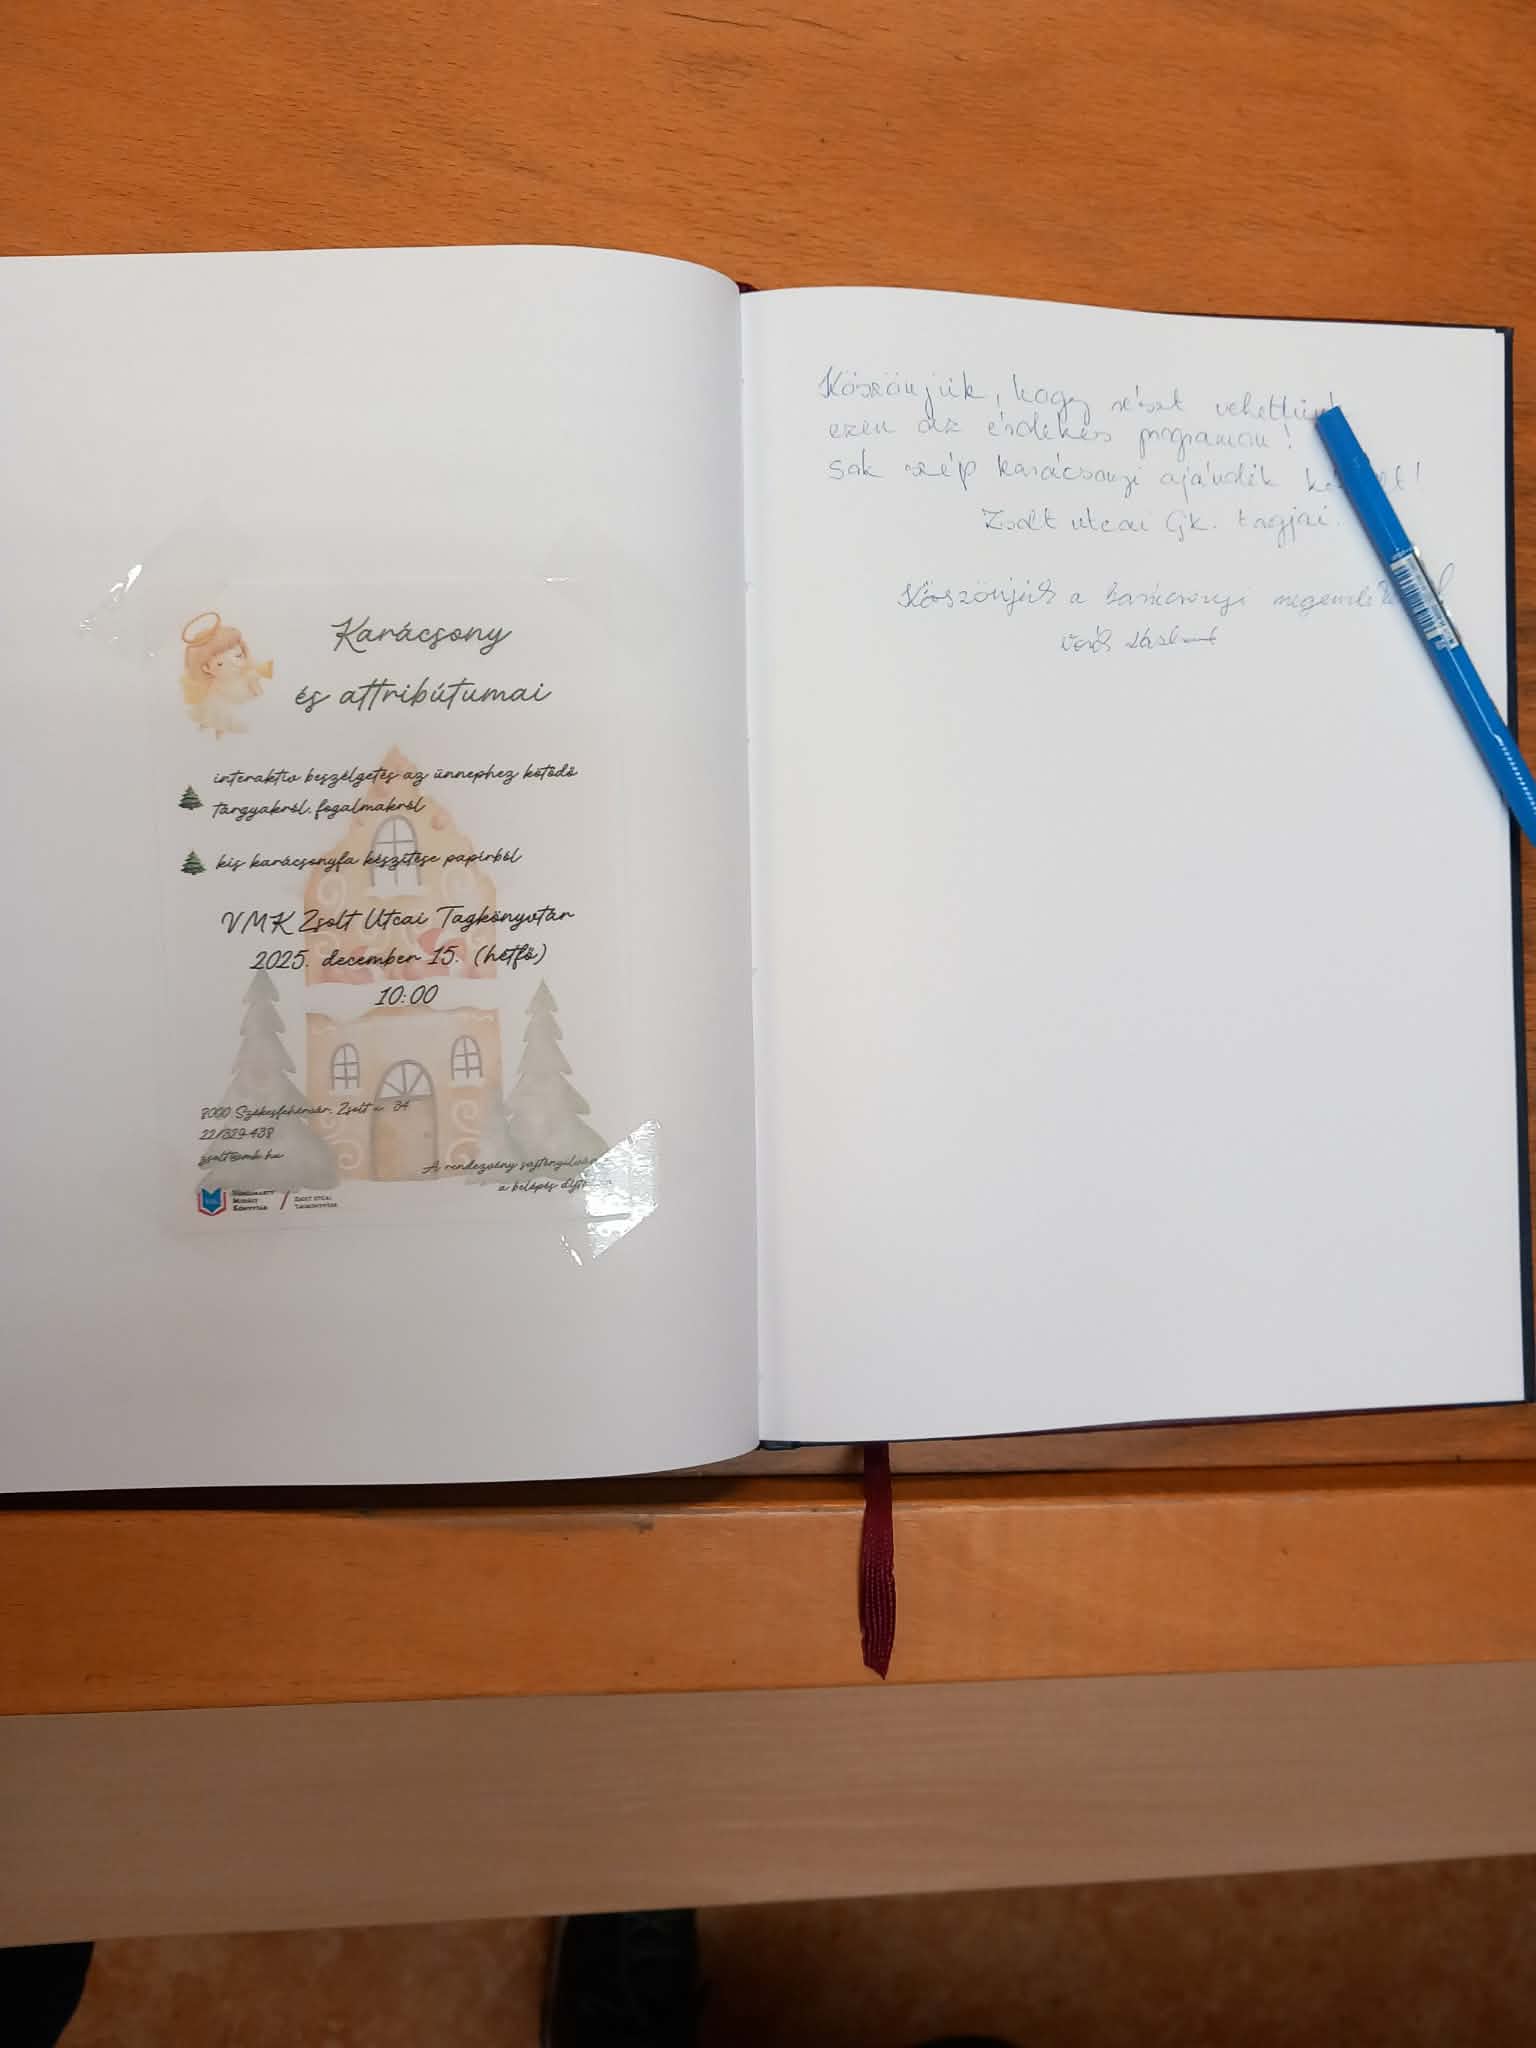 Karácsony
és attribútumai
interaktív beszélgetés az ünnephez kötődő
tárgyakról, fogalmakról
kis karácsonyfa készítése papírból
VMK Zsolt Utcai Tagkönyvtár
2025. december 15. (hétfő)
10:00
8000 Székesfehérvár, Zsolt u. 34
22/329-438
zsolt@vmk.hu
A rendezvény
a belépés
Vörösmarty
Mihály
Könyvtár
Zsolt utcai
Tagkönyvtár
Köszönjük, hogy részt vehettünk
ezen az érdekes programon!
Sok szép karácsonyi ajándék
Zsolt utcai Gk. tagjai.
Köszönjük a karácsonyi